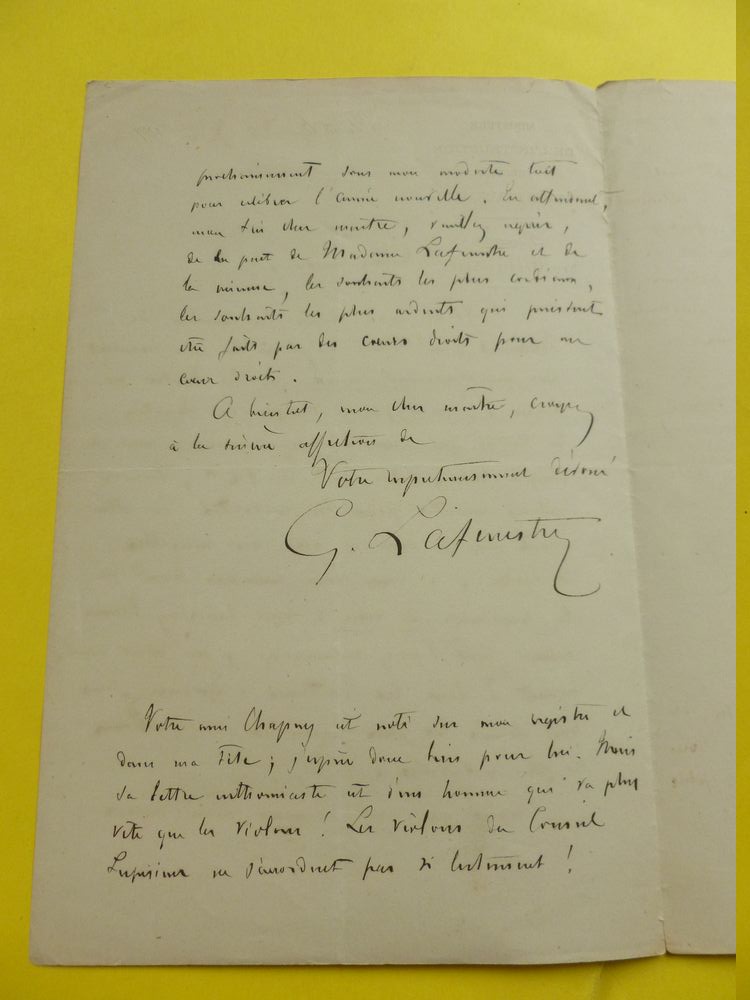 prochainement sous mon modeste toit
pour célébrer l'année nouvelle. En attendant,
mon très cher maître, veuillez agréer,
de la part de Madame Lafenestre et de
la mienne, les souhaits les plus cordiaux,
les souhaits les plus ardents qui puissent
être faits par des cœurs droits pour un
cœur droit.
A bientôt, mon cher maître, croyez
à la sincère affection de
Votre respectueusement dévoué
G. Lafenestre
Votre ami Chapuy est noté sur mon registre et
dans ma tête ; j'espère donc bien pour lui. Mais
sa lettre enthousiaste est d'un homme qui va plus
vite que les violons ! Les violons du Conseil
Supérieur ne s'accordent pas si lestement !